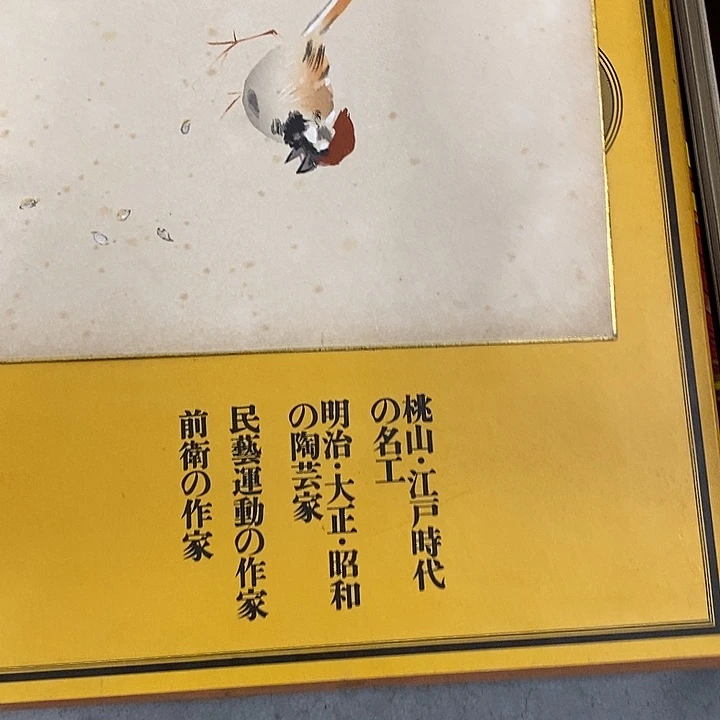 桃山・江戸時代
の名工
明治・大正・昭和
の陶芸家
民藝運動の作家
前衛の作家